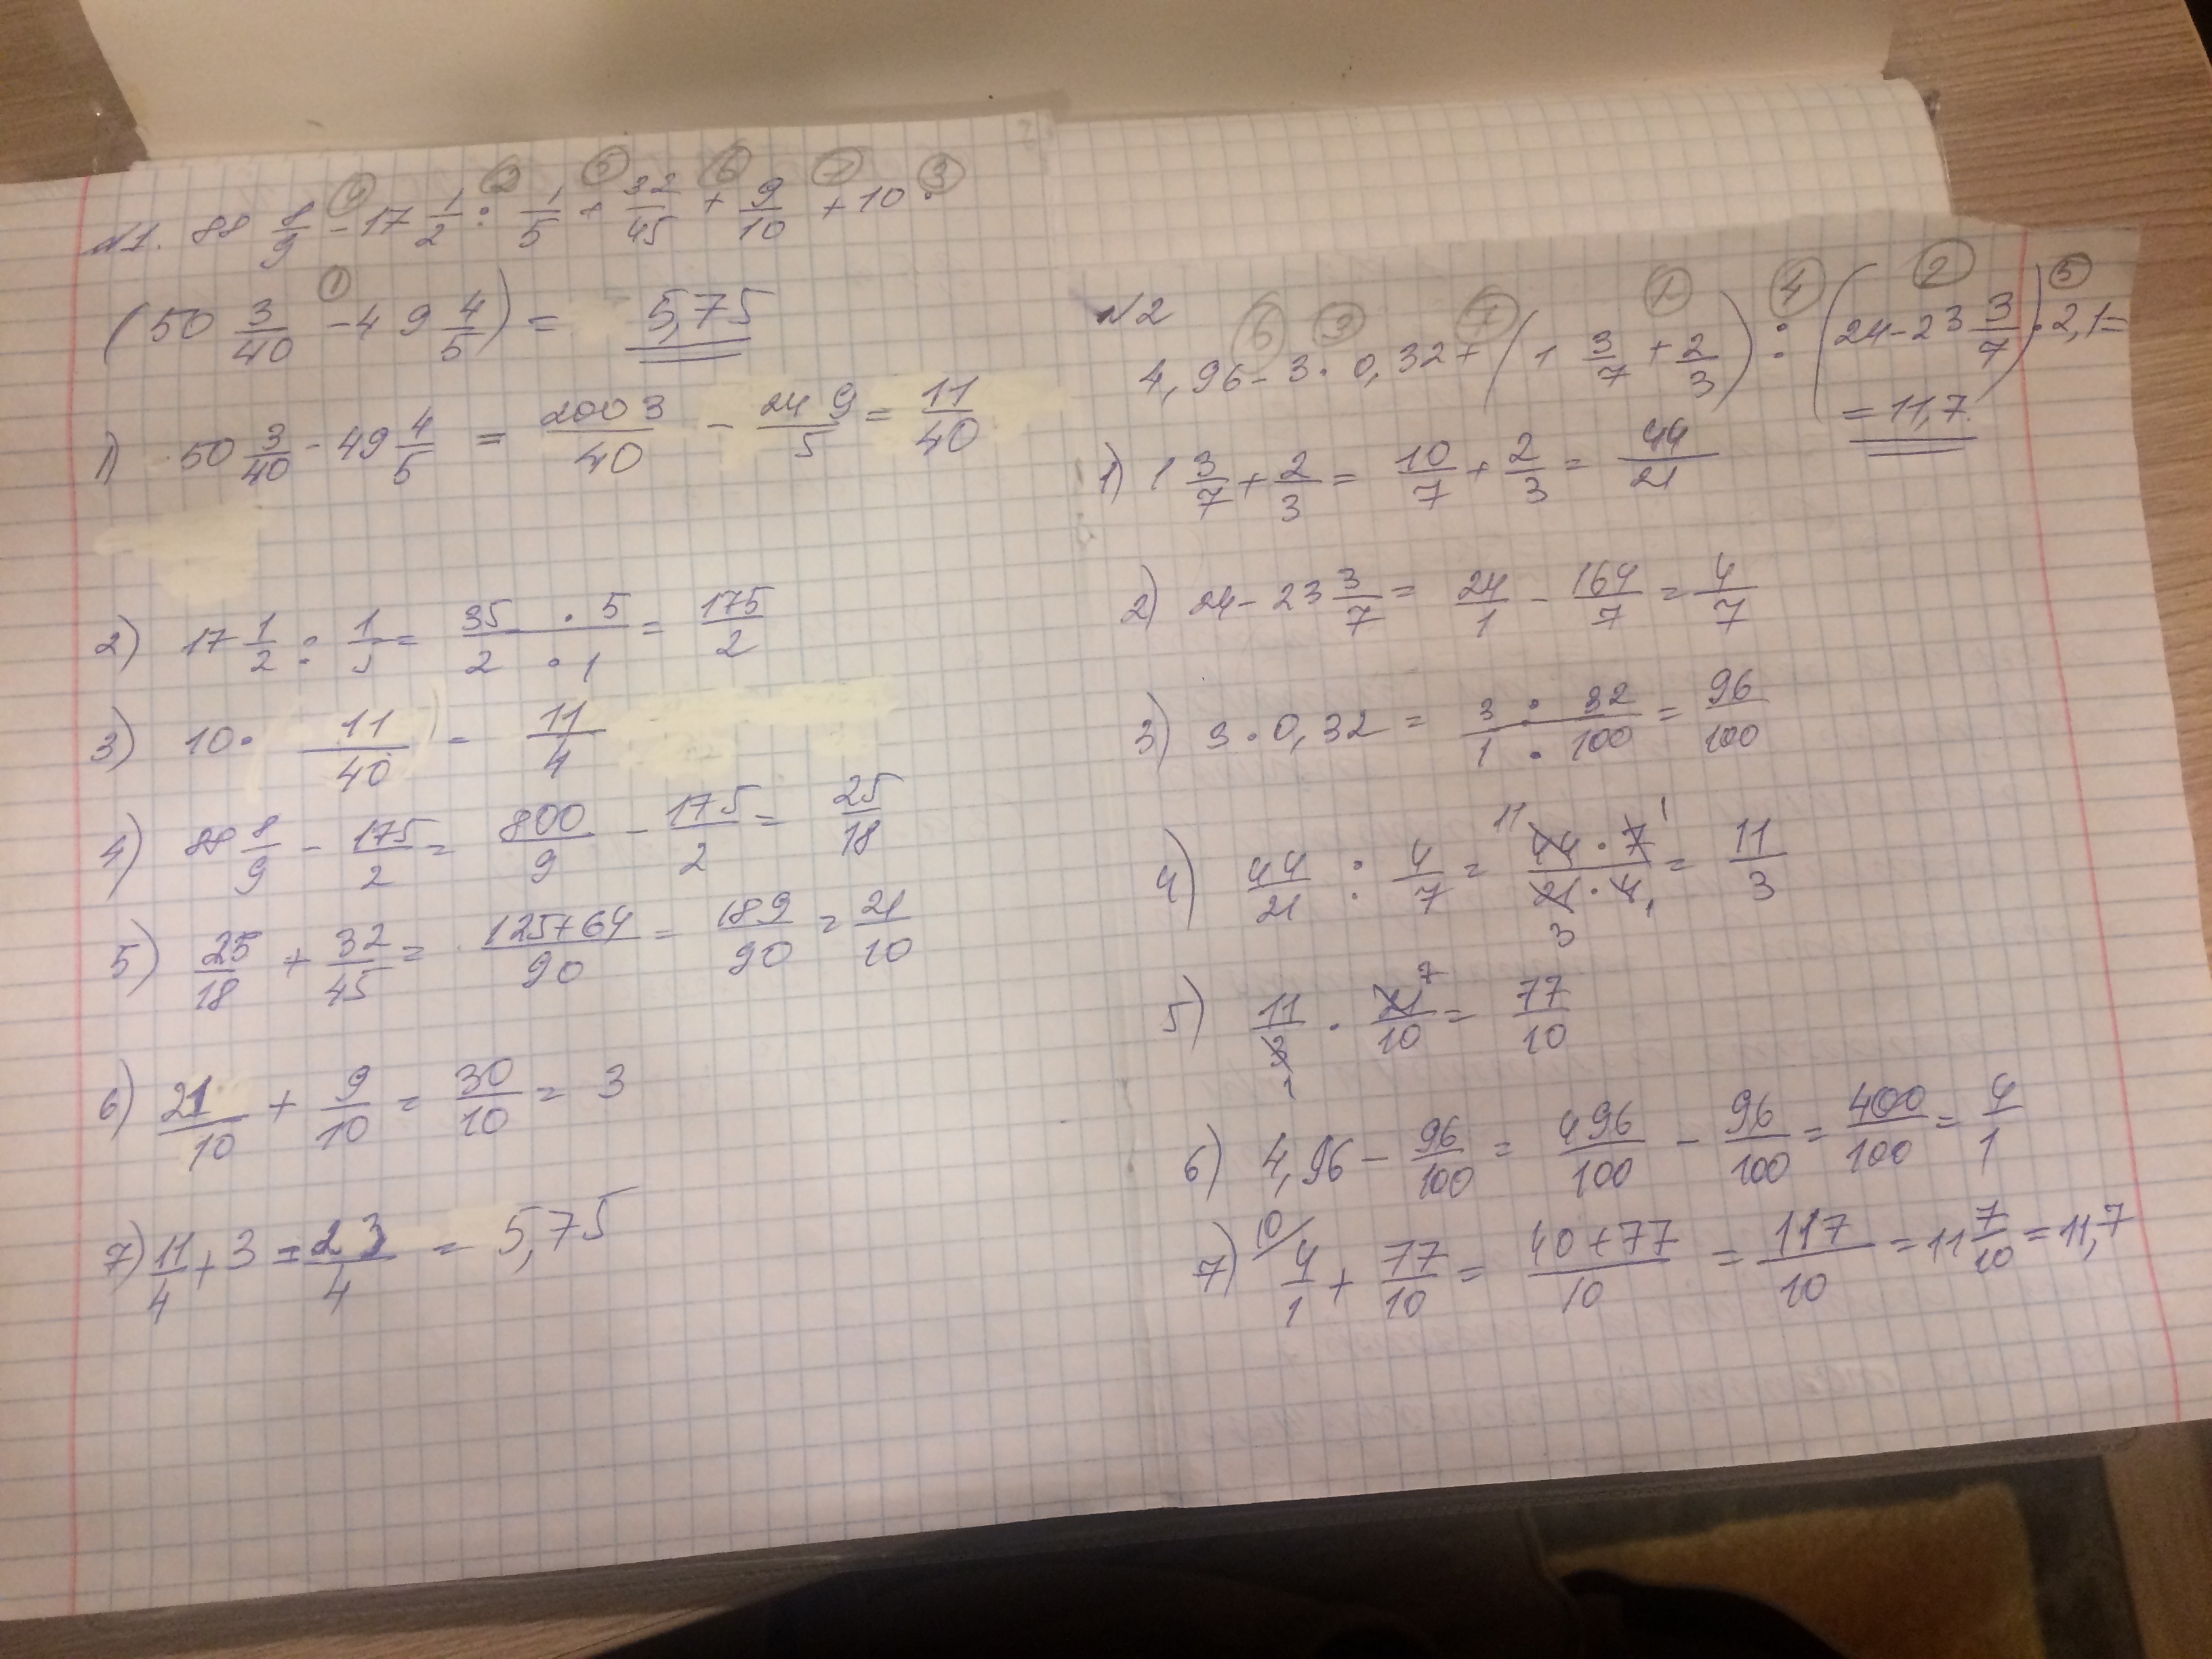 ④ ② ⑤ ⑥ ⑦ ③
№1. 88 8/9 - 17 1/2 : 1/5 + 32/45 + 9/10 + 10 ·
①
(50 3/40 - 49 4/5) = 5,75
1) 50 3/40 - 49 4/5 = 2003/40 - 249/5 = 11/40
2) 17 1/2 : 1/5 = 35 · 5/2 · 1 = 175/2
3) 10 · 11/40 = 11/4
4) 88 8/9 - 175/2 = 800/9 - 175/2 = 25/18
5) 25/18 + 32/45 = 125+64/90 = 189/90 = 21/10
6) 21/10 + 9/10 = 30/10 = 3
7) 11/4 + 3 = 23/4 = 5,75
№2
⑥ ③ ⑦ ① ④ ② ⑤
4,96 - 3 · 0,32 + (1 3/7 + 2/3) : (24 - 23 3/7) · 2,1 =
= 11,7.
1) 1 3/7 + 2/3 = 10/7 + 2/3 = 44/21
2) 24 - 23 3/7 = 24/1 - 164/7 = 4/7
3) 3 · 0,32 = 3 : 32/1 · 100 = 96/100
4) 44/21 : 4/7 = 11 44 · 7 1/21 · 4 1 3 = 11/3
5) 11/3 1 · 21 7/10 = 77/10
6) 4,96 - 96/100 = 496/100 - 96/100 = 400/100 = 4/1
7) 10/ 4/1 + 77/10 = 40+77/10 = 117/10 = 11 7/10 = 11,7